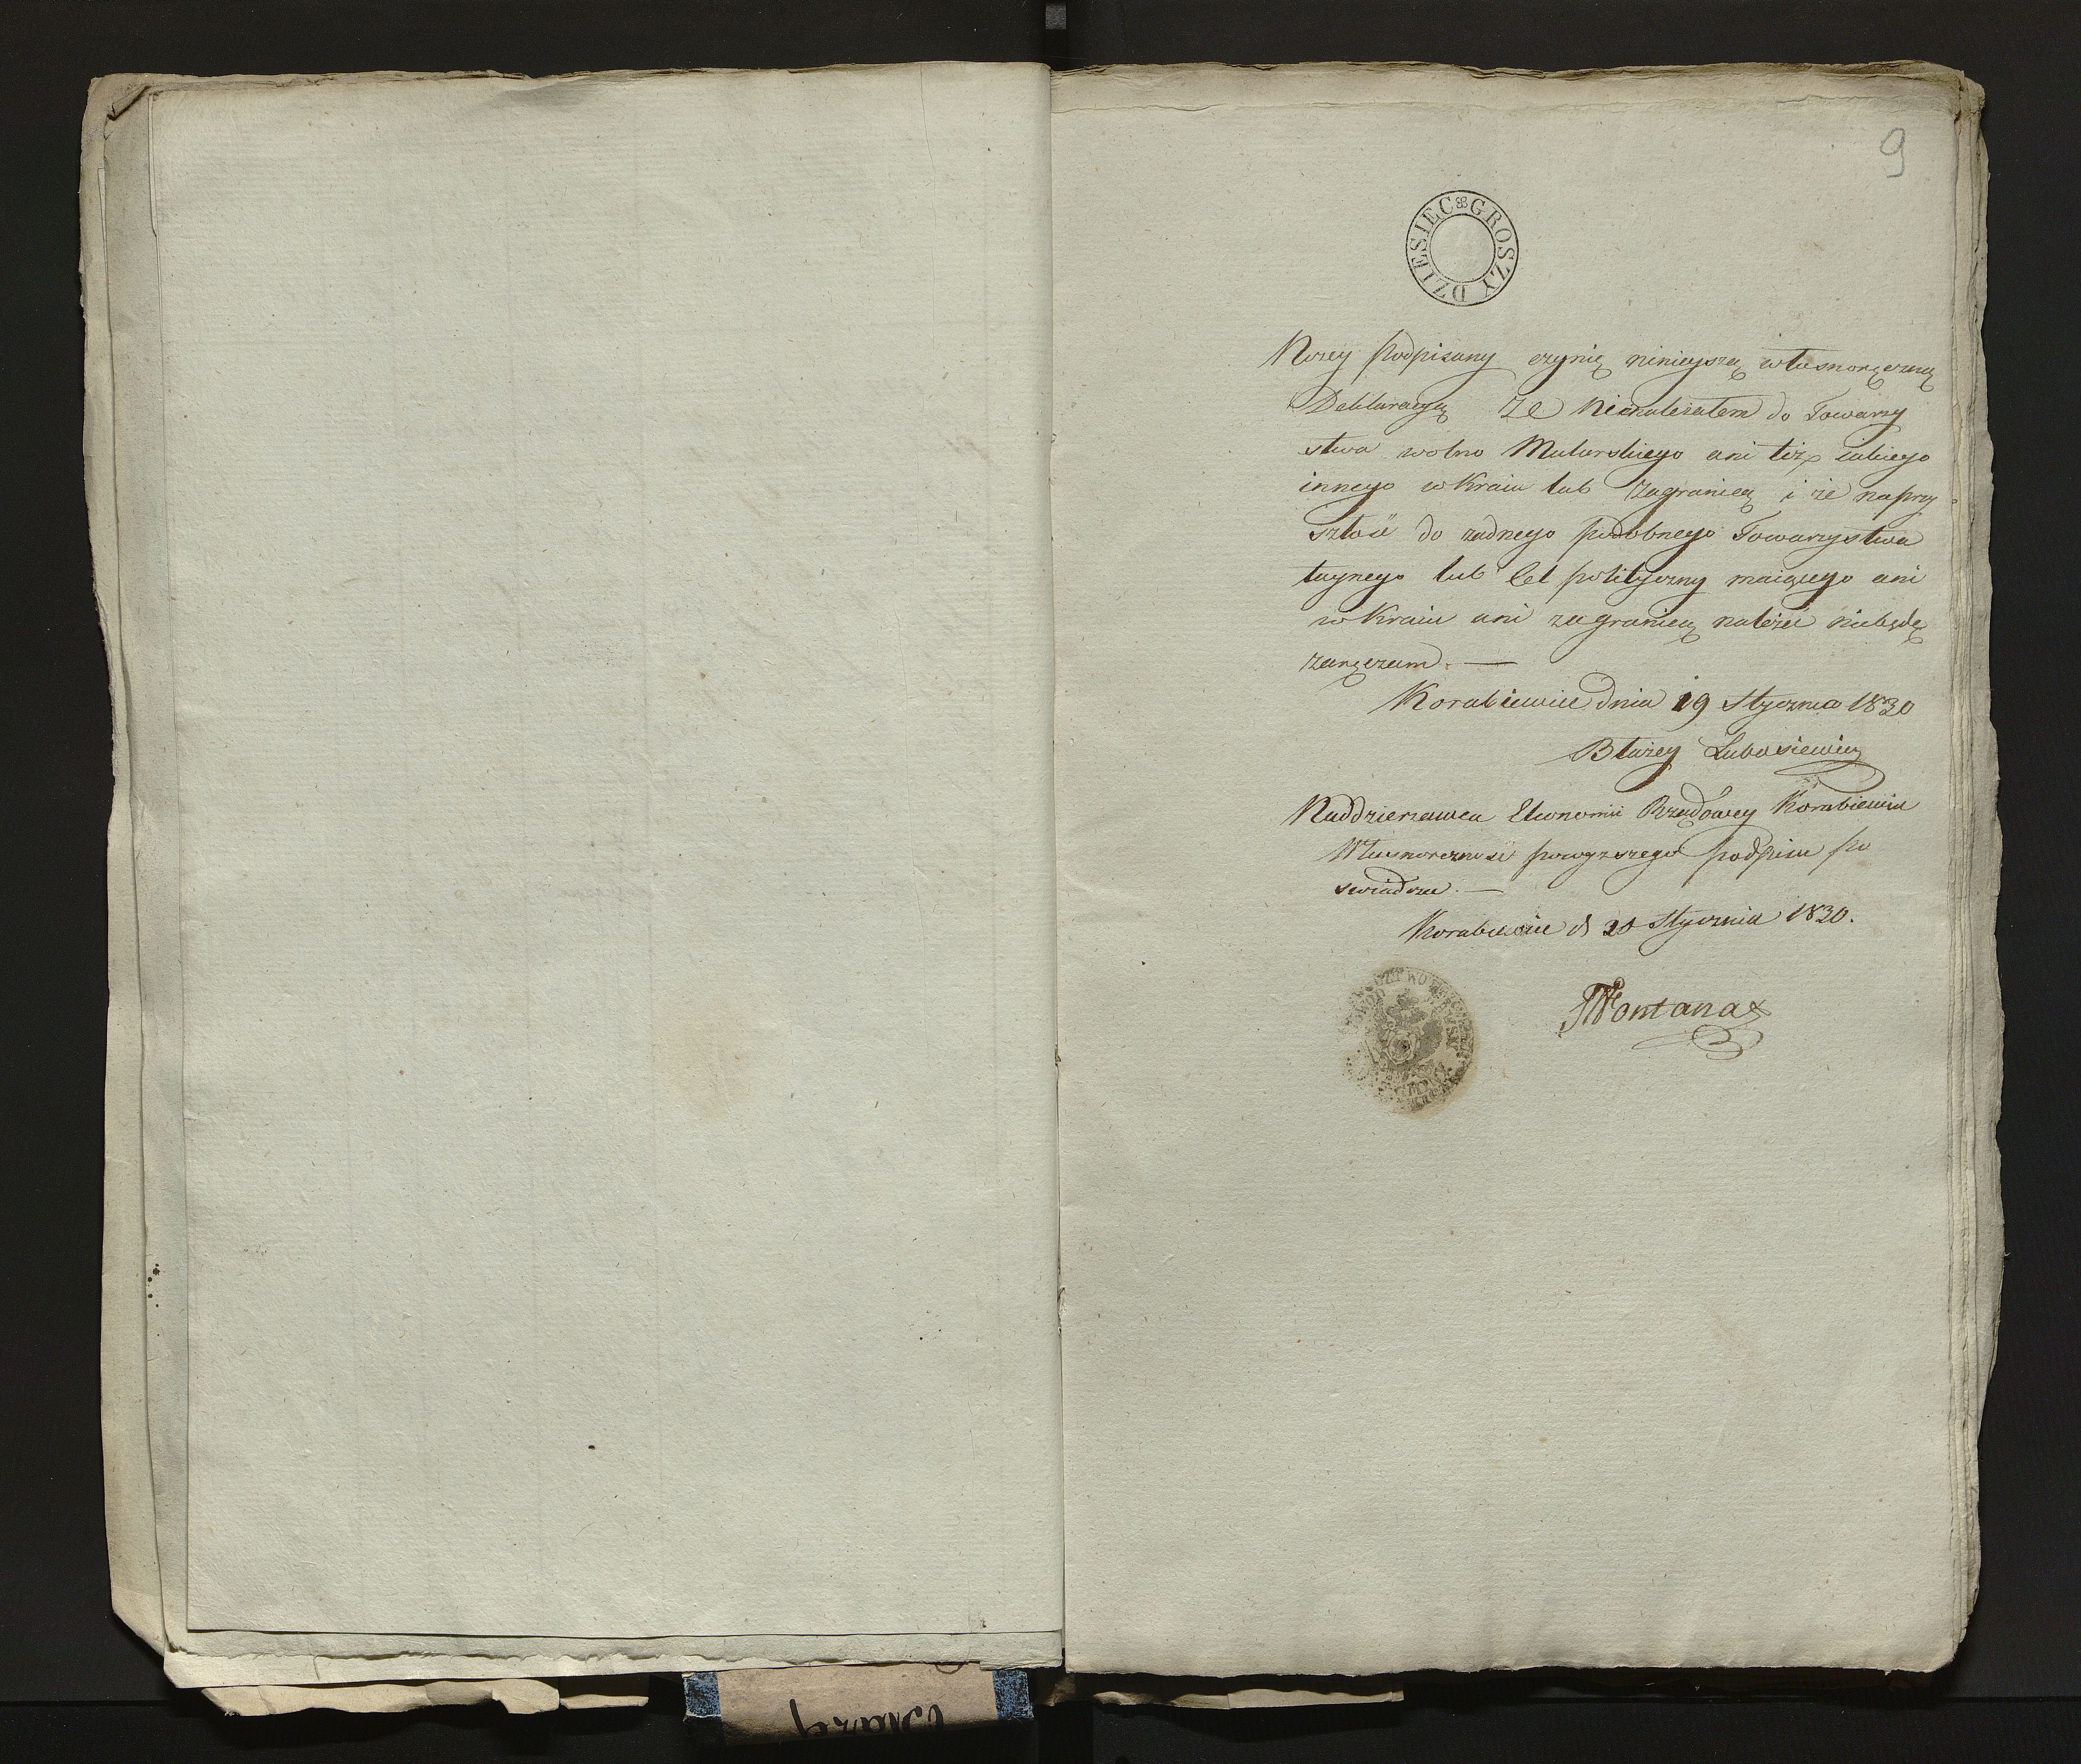 9
GROSZY DZIESIEC
Nizey Podpisany czynię ninieyszą własnoręczną
Deklaracyą Ze Nienależałem do Towarzy
stwa wolno Mularskiego ani też iakiego
innego w Kraiu lub Zagranicą i że naprzy-
szłość do żadnego podobnego Towarzystwa
taynego lub Cel polityczny maiącego ani
w Kraiu ani zagranicą należeć niebędę
zaręczam. —
Korabiewice Dnia 19 Stycznia 1830
Błażey Lubasiewicz
Naddzierzawca Ekonomii Rządowey Korabiewice
Własnoreczność powyzszego podpisu po
swiadcza. —
Korabiewice d 20 Stycznia 1830.
Fontana
Błażej